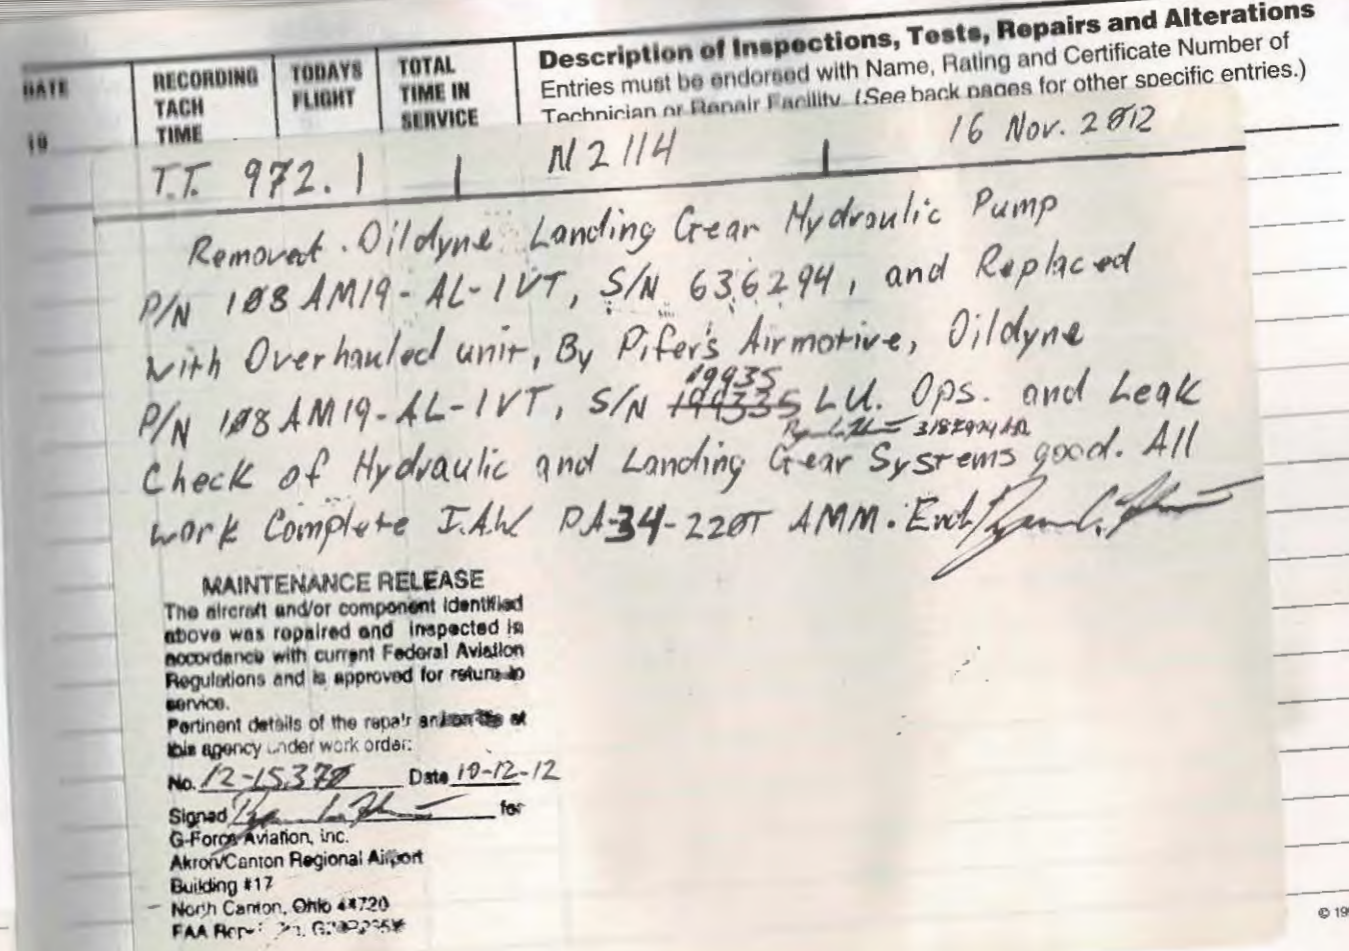 DATE
19
RECORDING
TACH
TIME
TODAYS
FLIGHT
TOTAL
TIME IN
SERVICE
Description of Inspections, Tests, Repairs and Alterations
Entries must be endorsed with Name, Rating and Certificate Number of
Technician or Repair Facility. (See back pages for other specific entries.)
T.T. 972.1 N2114 16 Nov. 2012
Removed Oildyne Landing Gear Hydraulic Pump
P/N 108AM19-AL-1VT, S/N 636294, and Replaced
with Overhauled unit, By Pifer's Airmotive, Oildyne
19935
P/N 108AM19-AL-1VT, S/N 199335 LU. Ops. and Leak
Check of Hydraulic and Landing Gear Systems good. All
work Complete I.A.W PA-34-220T AMM. End
MAINTENANCE RELEASE
The aircraft and/or component identified
above was repaired and inspected in
accordance with current Federal Aviation
Regulations and is approved for return to
service.
Pertinent details of the repair are on file at
this agency under work order:
No. 12-15370 Date 10-12-12
Signed for
G-Force Aviation, inc.
Akron/Canton Regional Airport
Building #17
North Canton, Ohio 44720
FAA
© 19